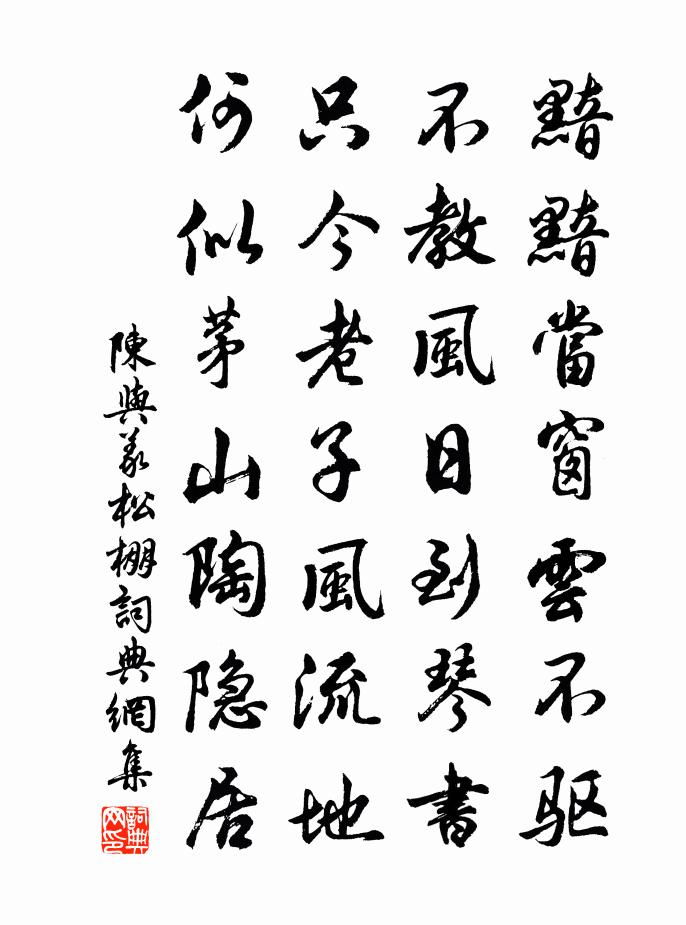 黯黯當窗雲不驱
不教風日到琴書
只今老子風流地
何似茅山陶隐居
陳與義松棚詞典網集
詞典网印